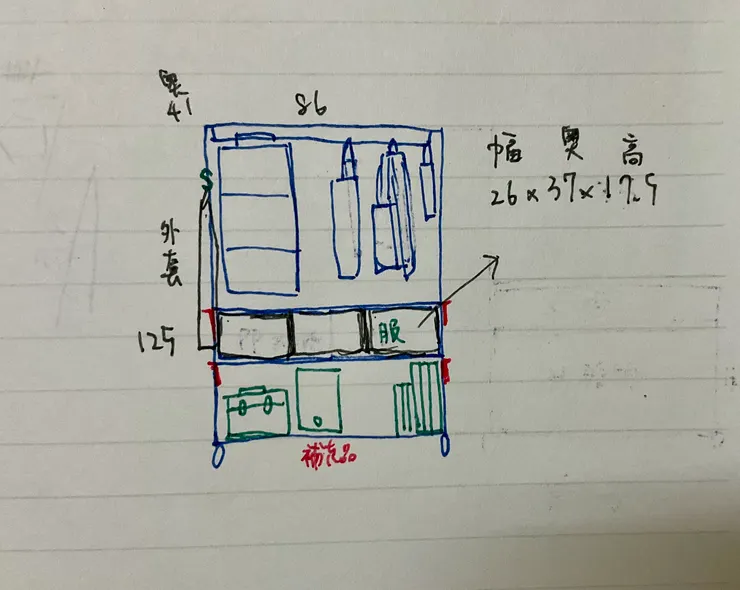 奥
41
86
幅 奥 高
26×37×17.5
S
外
套
125
服
補充品